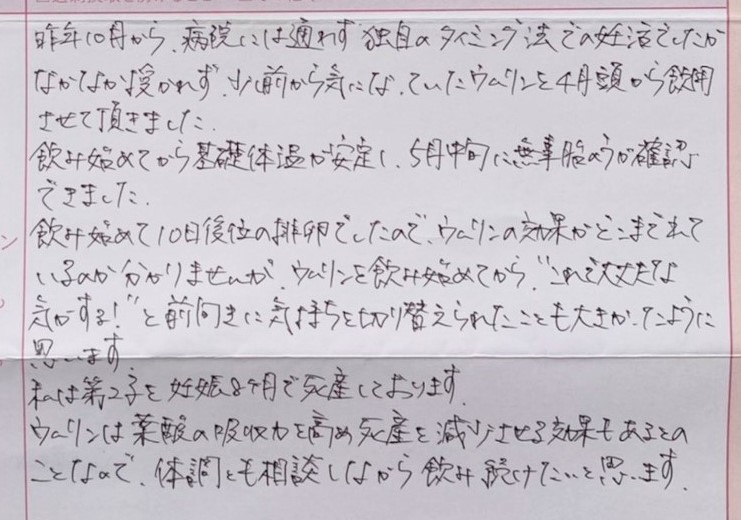 昨年10月から、病院には通わず独自のタイミング法での妊活でしたが
なかなか授かれず、少し前から気になっていたウムリンを4月頭から飲用
させて頂きました。
飲み始めてから基礎体温が安定し、5月中旬に無事胎のうが確認
できました。
飲み始めて10日後位の排卵でしたので、ウムリンの効果がどこまでされて
いるのか分かりませんが、ウムリンを飲み始めてから、"これで大丈夫な
気がする!"と前向きに気持ちを切り替えられたことも大きかったように
思います。
私は第2子を妊娠8ヶ月で死産しております。
ウムリンは葉酸の吸収力を高め死産を減少させる効果もあるとの
ことなので、体調とも相談しながら飲み続けたいと思います。
ン